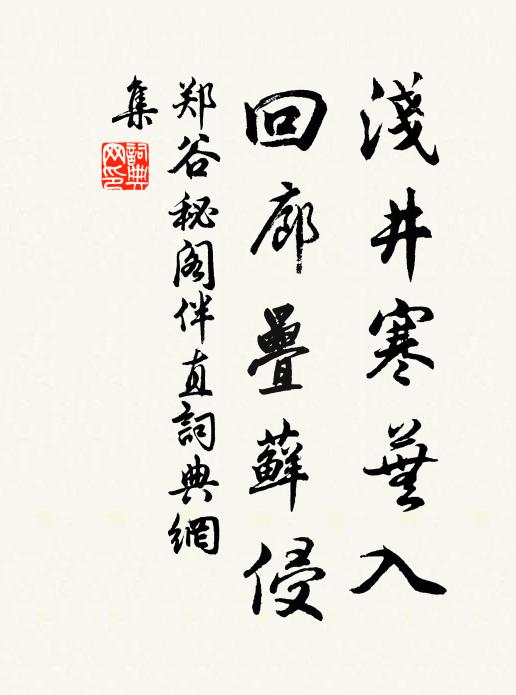 淺井寒蕪入
回廊疊蘚侵
郑谷秘阁伴直詞典網
集
詞典网印